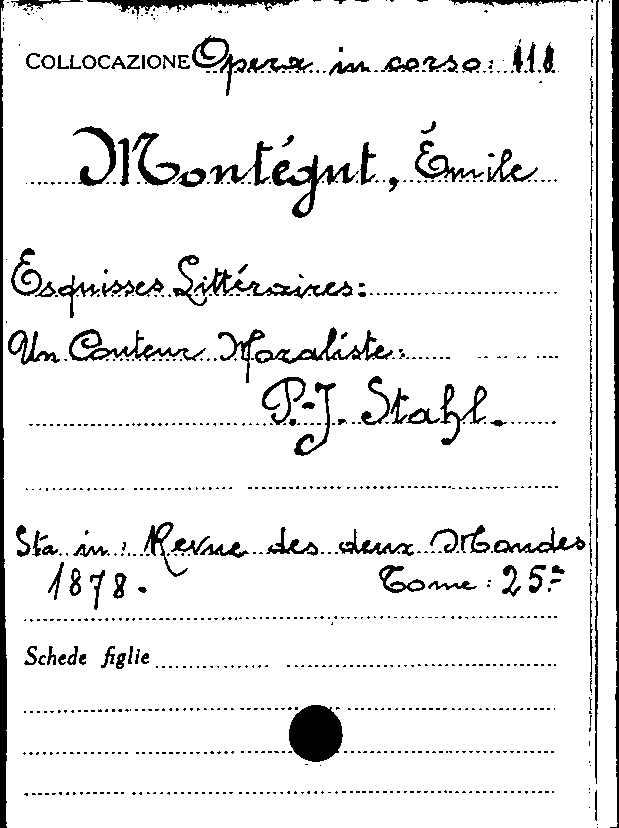 COLLOCAZIONE Opera in corso: 118
Montégut, Émile
Esquisses Littéraires:
Un Conteur Moraliste:
P.-J. Stahl.
Sta in: Revue des deux Mondes
1878. Tome: 25.=
Schede figlie